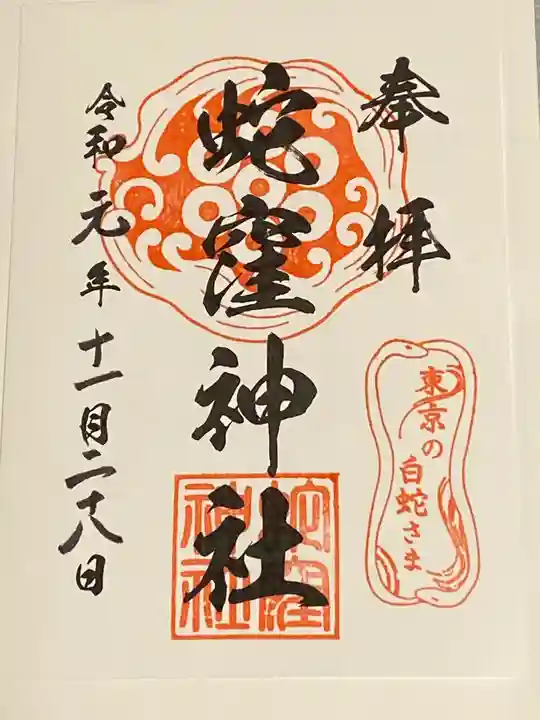 奉拝
蛇窪神社
令和元年十一月二十八日
東京の
白蛇さま
蛇窪
神社